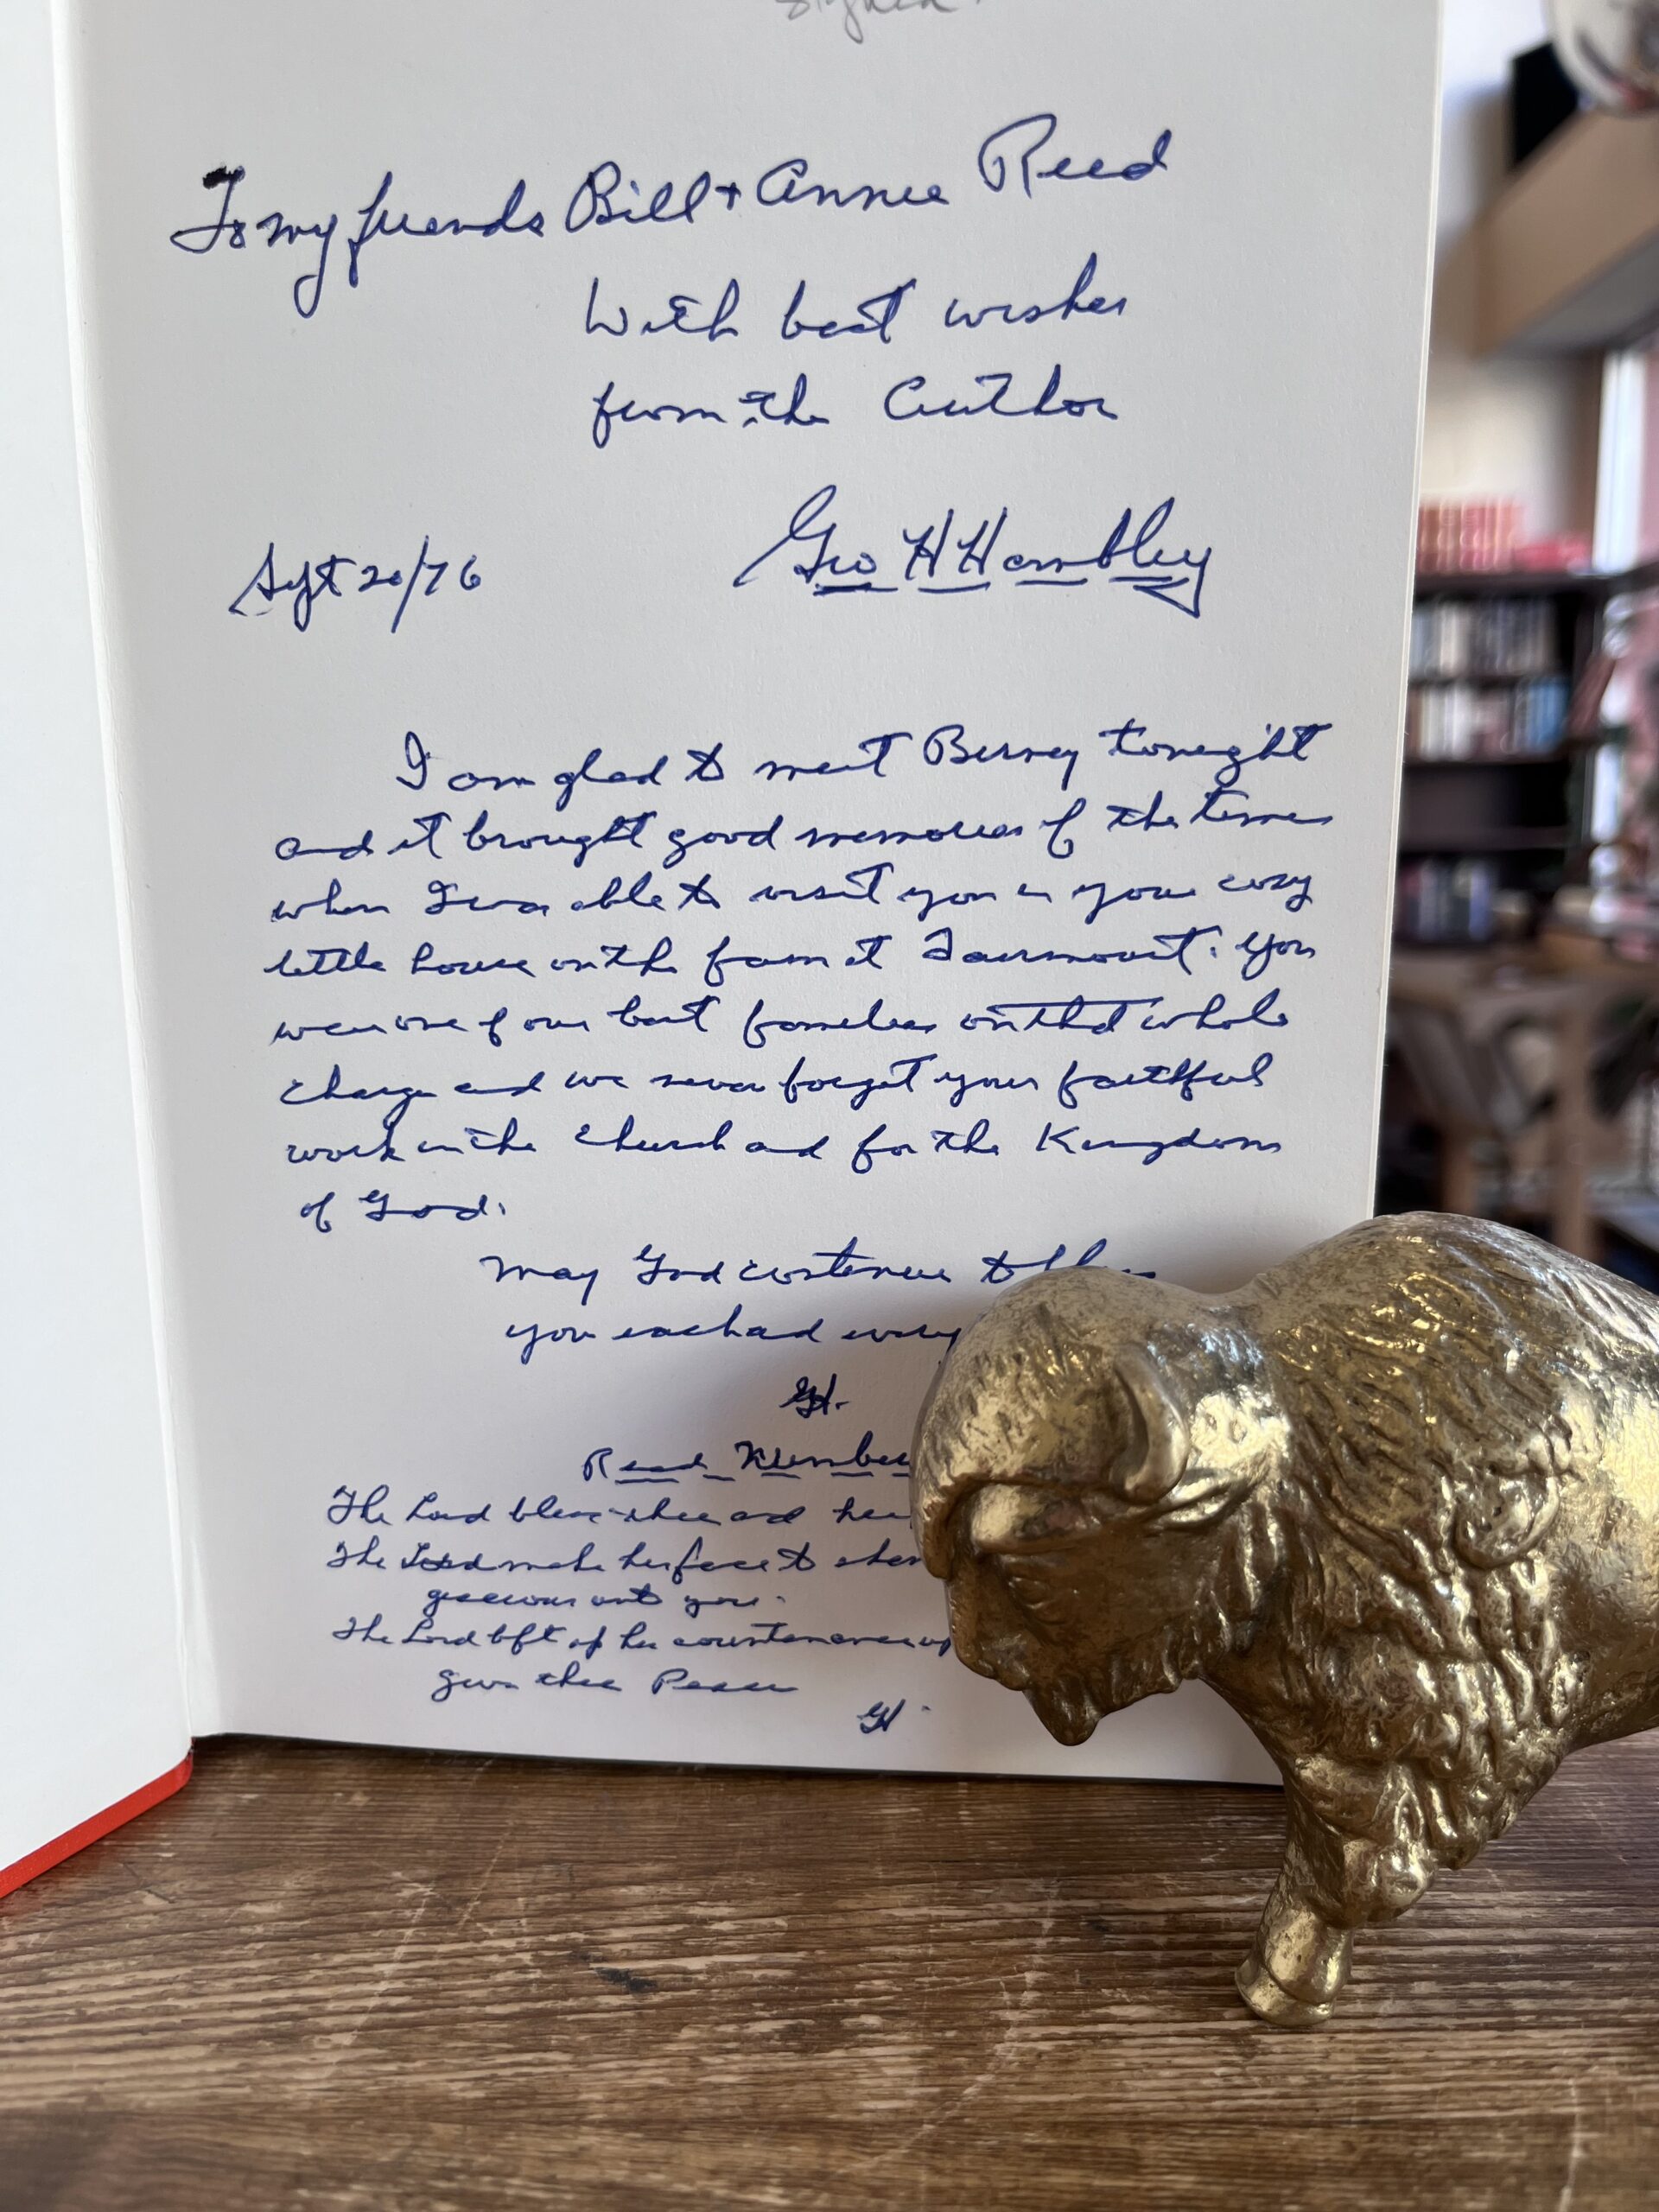 signed.
To my friends Bill + Annie Reed
With best wishes
from the Author
Sept 20/76
Geo H Hambley
I am glad to meet Berney tonight
and it brought good memories of the times
when I was able to visit you in your cosy
little house on the farm at Fairmount. You
were one of our best families on that whole
charge and we never forget your faithful
work in the church and for the Kingdom
of God.
May God continue to bless
you each and every
GH.
Read Number
The Lord bless thee and
The Lord make his face to
gracious unto you.
The Lord lift up his countenance
give thee Peace
GH.